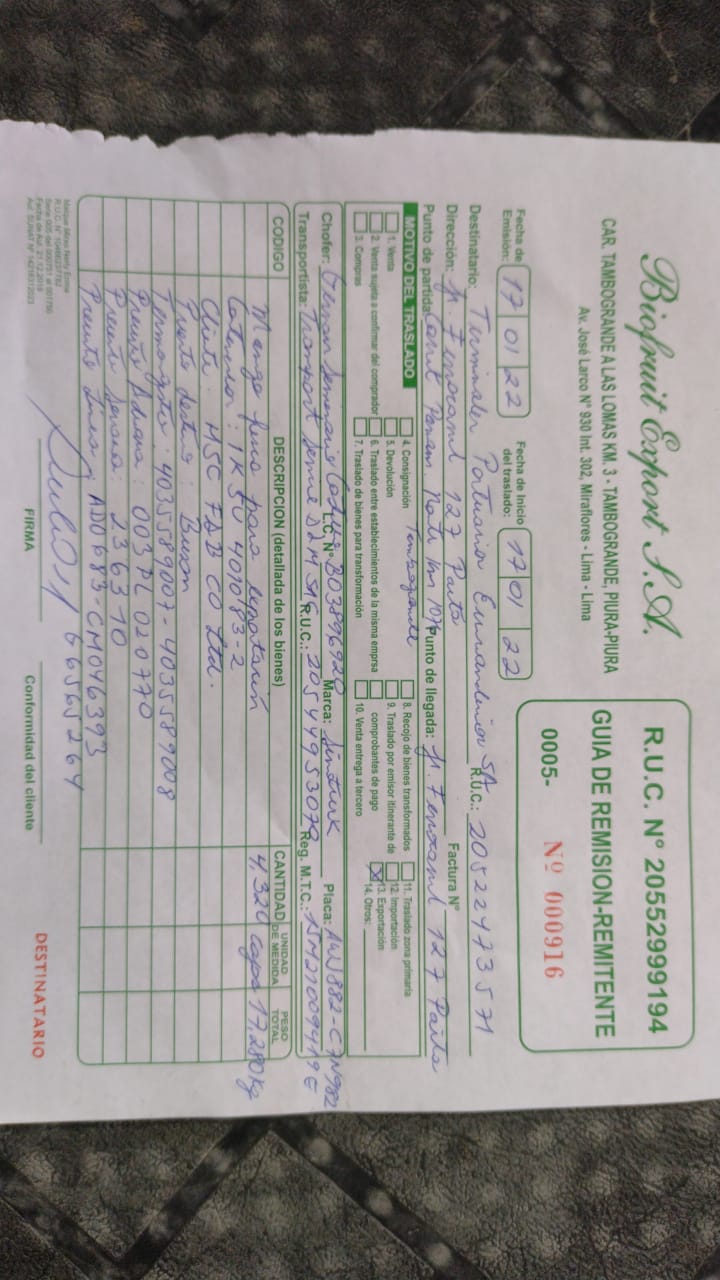 Biofruit Export S.A.
CAR. TAMBOGRANDE A LAS LOMAS KM. 3 - TAMBOGRANDE, PIURA-PIURA
Av. José Larco N° 930 Int. 302, Miraflores - Lima - Lima
R.U.C. N° 20552999194
GUIA DE REMISION-REMITENTE
0005- Nº 000916
Fecha de Emisión: 17 01 22 Fecha de Inicio del traslado: 17 01 22
Destinatario: Terminales Portuarios Euroandinos SA R.U.C.: 20522473571
Dirección: Jr. Ferrocarril 127 Paita Factura N°
Punto de partida: Carret Panam Norte Km 1076 Tambogrande Punto de llegada: Jr. Ferrocarril 127 Paita
MOTIVO DEL TRASLADO
1. Venta
2. Venta sujeta a confirmar del comprador
3. Compras
4. Consignación
5. Devolución
6. Traslado entre establecimientos de la misma emprsa
7. Traslado de bienes para transformación
8. Recojo de bienes transformados
9. Traslado por emisor itinerante de comprobantes de pago
10. Venta entrega a tercero
11. Traslado zona primaria
12. Importación
13. Exportación
14. Otros:
Chofer: L.C. N°: B03896920 Marca: Placa: AWW882-C7N982
Transportista: Transport R.U.C.: 20549953079 Reg. M.T.C.: 15M21009419E
CODIGO DESCRIPCION (detallada de los bienes) CANTIDAD UNIDAD DE MEDIDA PESO TOTAL
Mango fresco para exportación 4,320 cajas 17,280 Kg
Contenedor: TKSU 401083-2
Cliente: HSC F&B CO Ltd.
Puerto destino: Busan
Termografo: 4035589007-4035589008
Precinto Aduana: 003 PL 020770
Precinto Senasa: 236310
Precinto Linea: AD0683-CM046393
66565264
FIRMA
Conformidad del cliente
DESTINATARIO